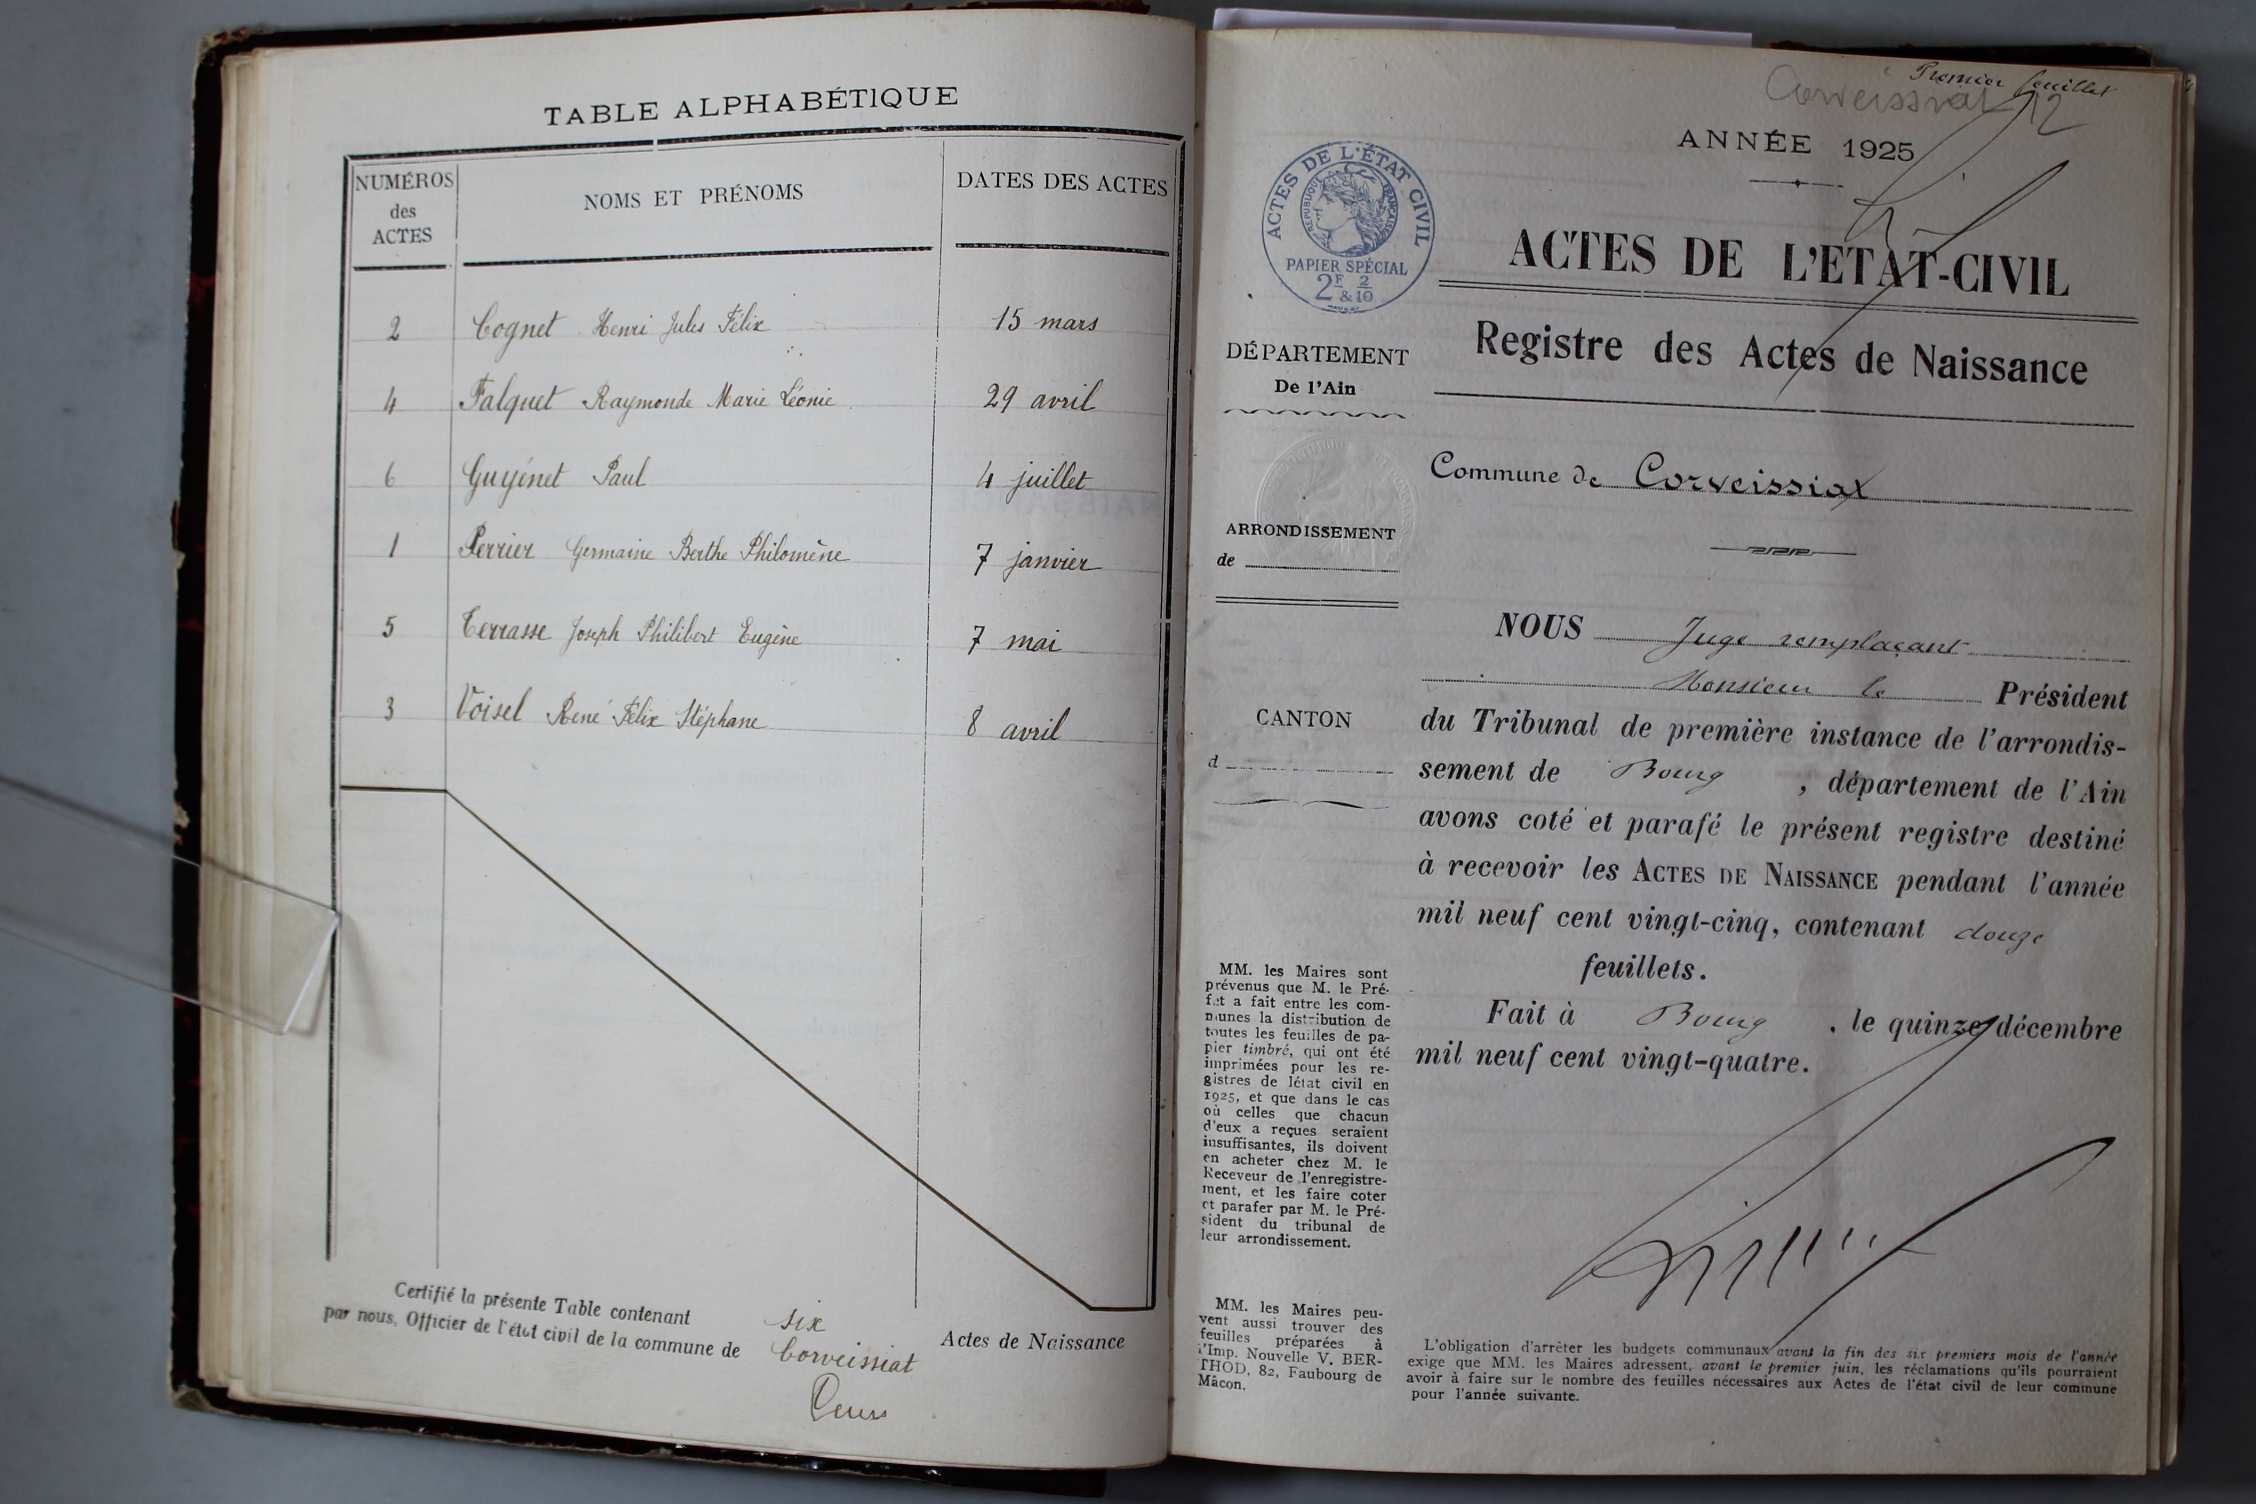 TABLE ALPHABÉTIQUE
NUMÉROS
des
ACTES
NOMS ET PRÉNOMS
DATES DES ACTES
2 Cognet Henri Jules Félix 15 mars
4 Falquet Raymonde Marie Léonie 29 avril
6 Guyénet Paul 4 juillet
1 Perrier Germaine Berthe Philomène 7 janvier
5 Terrasse Joseph Philibert Eugène 7 mai
3 Voisel René Félix Stéphane 8 avril
Certifié la présente Table contenant six Actes de Naissance
par nous, Officier de l'état civil de la commune de Corveissiat
Premier feuillet
Corveissiat 12
ANNÉE 1925
ACTES DE L'ÉTAT CIVIL
RÉPUBLIQUE FRANÇAISE
PAPIER SPÉCIAL
2F 2
& 10
ACTES DE L'ÉTAT-CIVIL
Registre des Actes de Naissance
DÉPARTEMENT
De l'Ain
Commune de Corveissiat
ARRONDISSEMENT
de
CANTON
d
NOUS Juge remplaçant
Monsieur le Président
du Tribunal de première instance de l'arrondis-
sement de Bourg , département de l'Ain
avons coté et parafé le présent registre destiné
à recevoir les ACTES DE NAISSANCE pendant l'année
mil neuf cent vingt-cinq, contenant douze
feuillets.
Fait à Bourg , le quinze décembre
mil neuf cent vingt-quatre.
MM. les Maires sont
prévenus que M. le Pré-
fet a fait entre les com-
munes la distribution de
toutes les feuilles de pa-
pier timbré, qui ont été
imprimées pour les re-
gistres de létat civil en
1925, et que dans le cas
où celles que chacun
d'eux a reçues seraient
insuffisantes, ils doivent
en acheter chez M. le
Receveur de l'enregistre-
ment, et les faire coter
et parafer par M. le Pré-
sident du tribunal de
leur arrondissement.
MM. les Maires peu-
vent aussi trouver des
feuilles préparées à
l'Imp. Nouvelle V. BER-
THOD, 82, Faubourg de
Mâcon.
L'obligation d'arrêter les budgets communaux avant la fin des six premiers mois de l'année
exige que MM. les Maires adressent, avant le premier juin, les réclamations qu'ils pourraient
avoir à faire sur le nombre des feuilles nécessaires aux Actes de l'état civil de leur commune
pour l'année suivante.